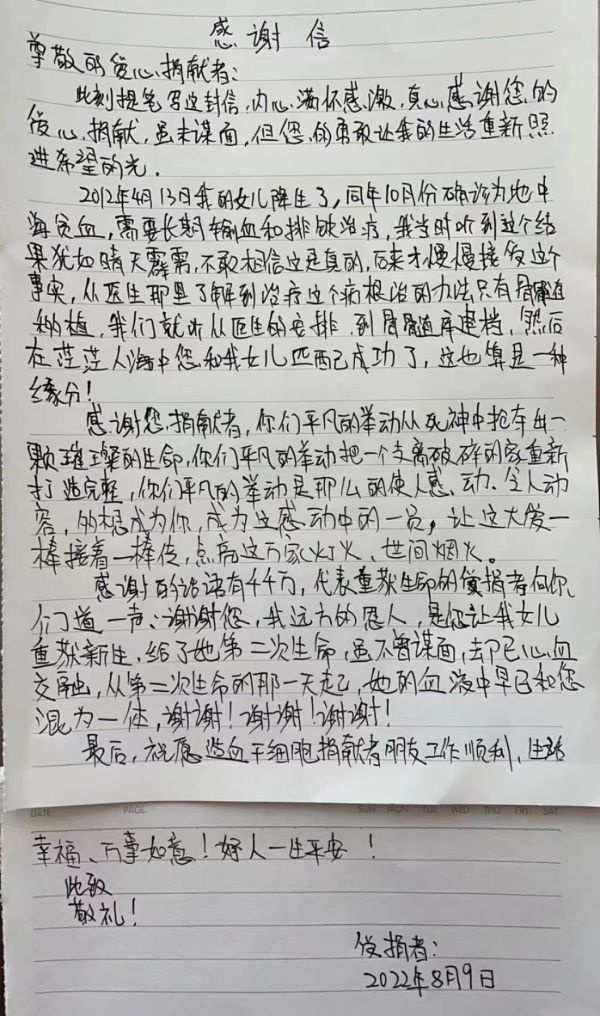 感谢信
尊敬的爱心捐献者：
此刻提笔写这封信，内心满怀感激，真心感谢您的
爱心捐献，虽未谋面，但您的勇敢让我的生活重新照
进希望的光。
2012年4月13日我的女儿降生了，同年10月份确诊为地中
海贫血，需要长期输血和排铁治疗，我当时听到这个结
果犹如晴天霹雳，不敢相信这是真的，后来才慢慢接受这个
事实，从医生那里了解到治疗这个病根治的办法只有骨髓
移植，我们就听从医生的安排，到骨髓库建档，然后
在茫茫人海中您和我女儿匹配已成功了，这也算是一种
缘分！
感谢您捐献者，你们平凡的举动从死神中抢夺出一
颗璀璨的生命，你们平凡的举动把一个支离破碎的家重新
打造完整，你们平凡的举动是那么的使人感动、令人动
容，的想成为你，成为这感动中的一员，让这大爱一
棒接着一棒传，点亮这万家灯火，世间烟火。
感谢的话语有千千万，代表重获生命的受捐者向你
们道一声：谢谢您，我远方的恩人，是您让我女儿
重获新生，给了她第二次生命，虽不曾谋面，却已心血
交融，从第二次生命的那一天起，她的血液中早已和您
混为一体，谢谢！谢谢！谢谢！
最后，祝愿造血干细胞捐献者朋友工作顺利，生活
DATE PAGE SUN MON TUE WED THU FRI SAT
幸福、万事如意！好人一生平安！
此致
敬礼！
受捐者：
2022年8月9日